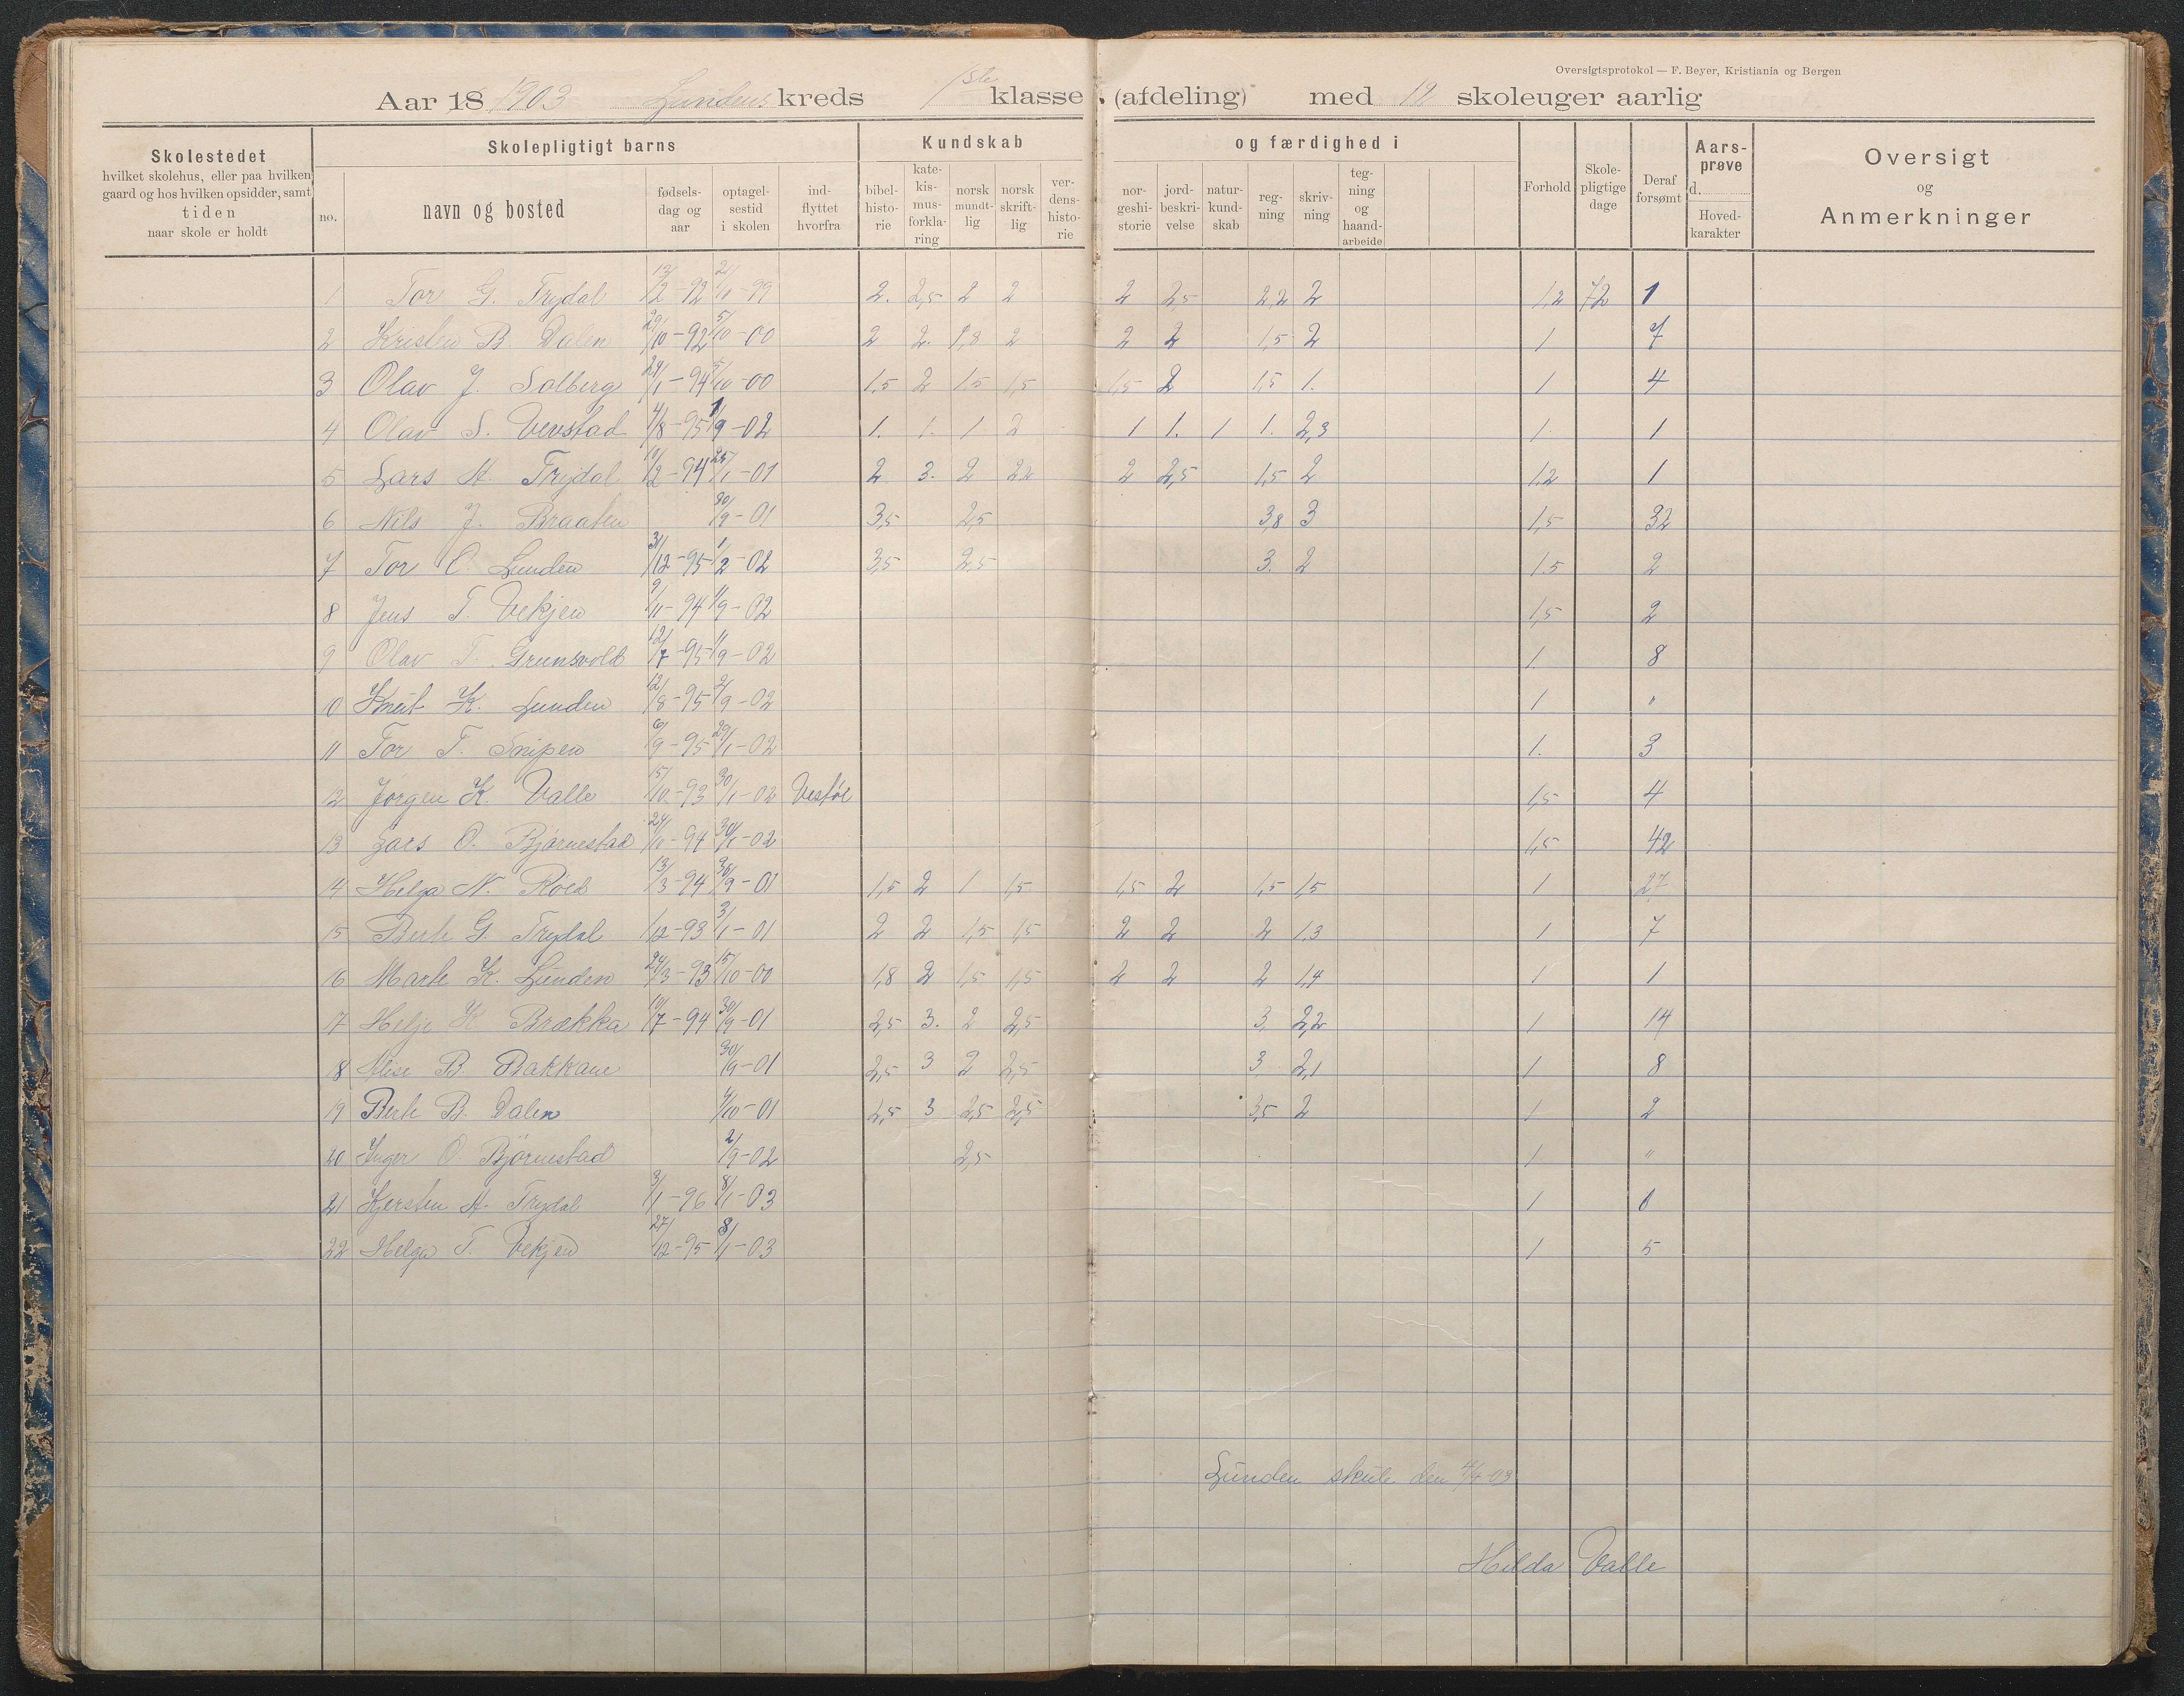 Oversigtsprotokol — F. Beyer, Kristiania og Bergen
Aar 18 1903 Lundens kreds 1ste klasse (afdeling) med 12 skoleuger aarlig
Skolestedet hvilket skolehus, eller paa hvilken gaard og hos hvilken opsidder, samt tiden naar skole er holdt
Skolepligtigt barns
no. navn og bosted fødselsdag og aar optagelsestid i skolen indflyttet hvorfra
Kundskab og færdighed i
bibelhistorie katekismusforklaring norsk mundtlig norsk skriftlig verdenshistorie norgeshistorie jordbeskrivelse naturkundskab regning skrivning tegning og haandarbeide
Forhold Skolepligtige dage Deraf forsømt Aarsprøve d. Hovedkarakter
Oversigt og Anmerkninger
1 Tor G. Trydal 13/2-92 21/10-99 2. 2,5 2 2 2 2,5 2,2 2 1,2 72 1
2 Kristen B. Dalen 29/10-92 5/10-00 2 2. 1,8 2 2 2 1,5 2 1 7
3 Olav J. Solberg 24/1-94 5/10-00 1,5 2 1,5 1,5 1,5 2 1,5 1. 1 4
4 Olav S. Vevstad 4/8-95 1/9-02 1. 1. 1 2 1 1. 1 1. 2,3 1. 1
5 Lars A. Trydal 11/2-94 25/1-01 2 3. 2 2,2 2 2,5 1,5 2 1,2 1
6 Nils J. Braaten 30/9-01 3,5 2,5 3,8 3 1,5 32
7 Tor O. Lunden 31/12-95 1/2-02 3,5 2,5 3. 2 1,5 2
8 Jens T. Vekjen 9/11-94 1/9-02 1,5 2
9 Olav T. Grunsvold 12/7-95 1/9-02 1. 8
10 Knut K. Lunden 12/8-95 2/9-02 1 "
11 Tor T. Snipen 6/9-95 29/1-02 1. 3
12 Jørgen K. Valle 15/10-93 30/1-02 Vestøl 1,5 4
13 Lars O. Bjørnestad 24/10-94 30/1-02 1,5 42
14 Helga N. Røed 13/3-94 30/9-01 1,5 2 1 1,5 1,5 2 1,5 1,5 1 27
15 Berte G. Trydal /12-93 3/1-01 2 2 1,5 1,5 2 2 2 1,3 1 7
16 Marte K. Lunden 24/3-93 15/10-00 1,8 2 1,5 1,5 2 2 2 1,4 1 1
17 Helje K. Brækka 10/7-94 30/9-01 2,5 3. 2 2,5 3. 2,2 1 14
18 B. Bakkane 30/9-01 2,5 3 2 2,5 3. 2,1 1 8
19 Berte B. Dalen /10-01 2,5 3 2,5 2,5 3,5 2 1 2
20 Inger O. Bjørnestad 2/9-02 2,5 1 "
21 Kjersten A. Trydal 3/1-96 8/1-03 1
22 Helga T. Vekjen 27/12-95 8/1-03 1 5
Lunden skule den 4/4-03
Hilda Valle